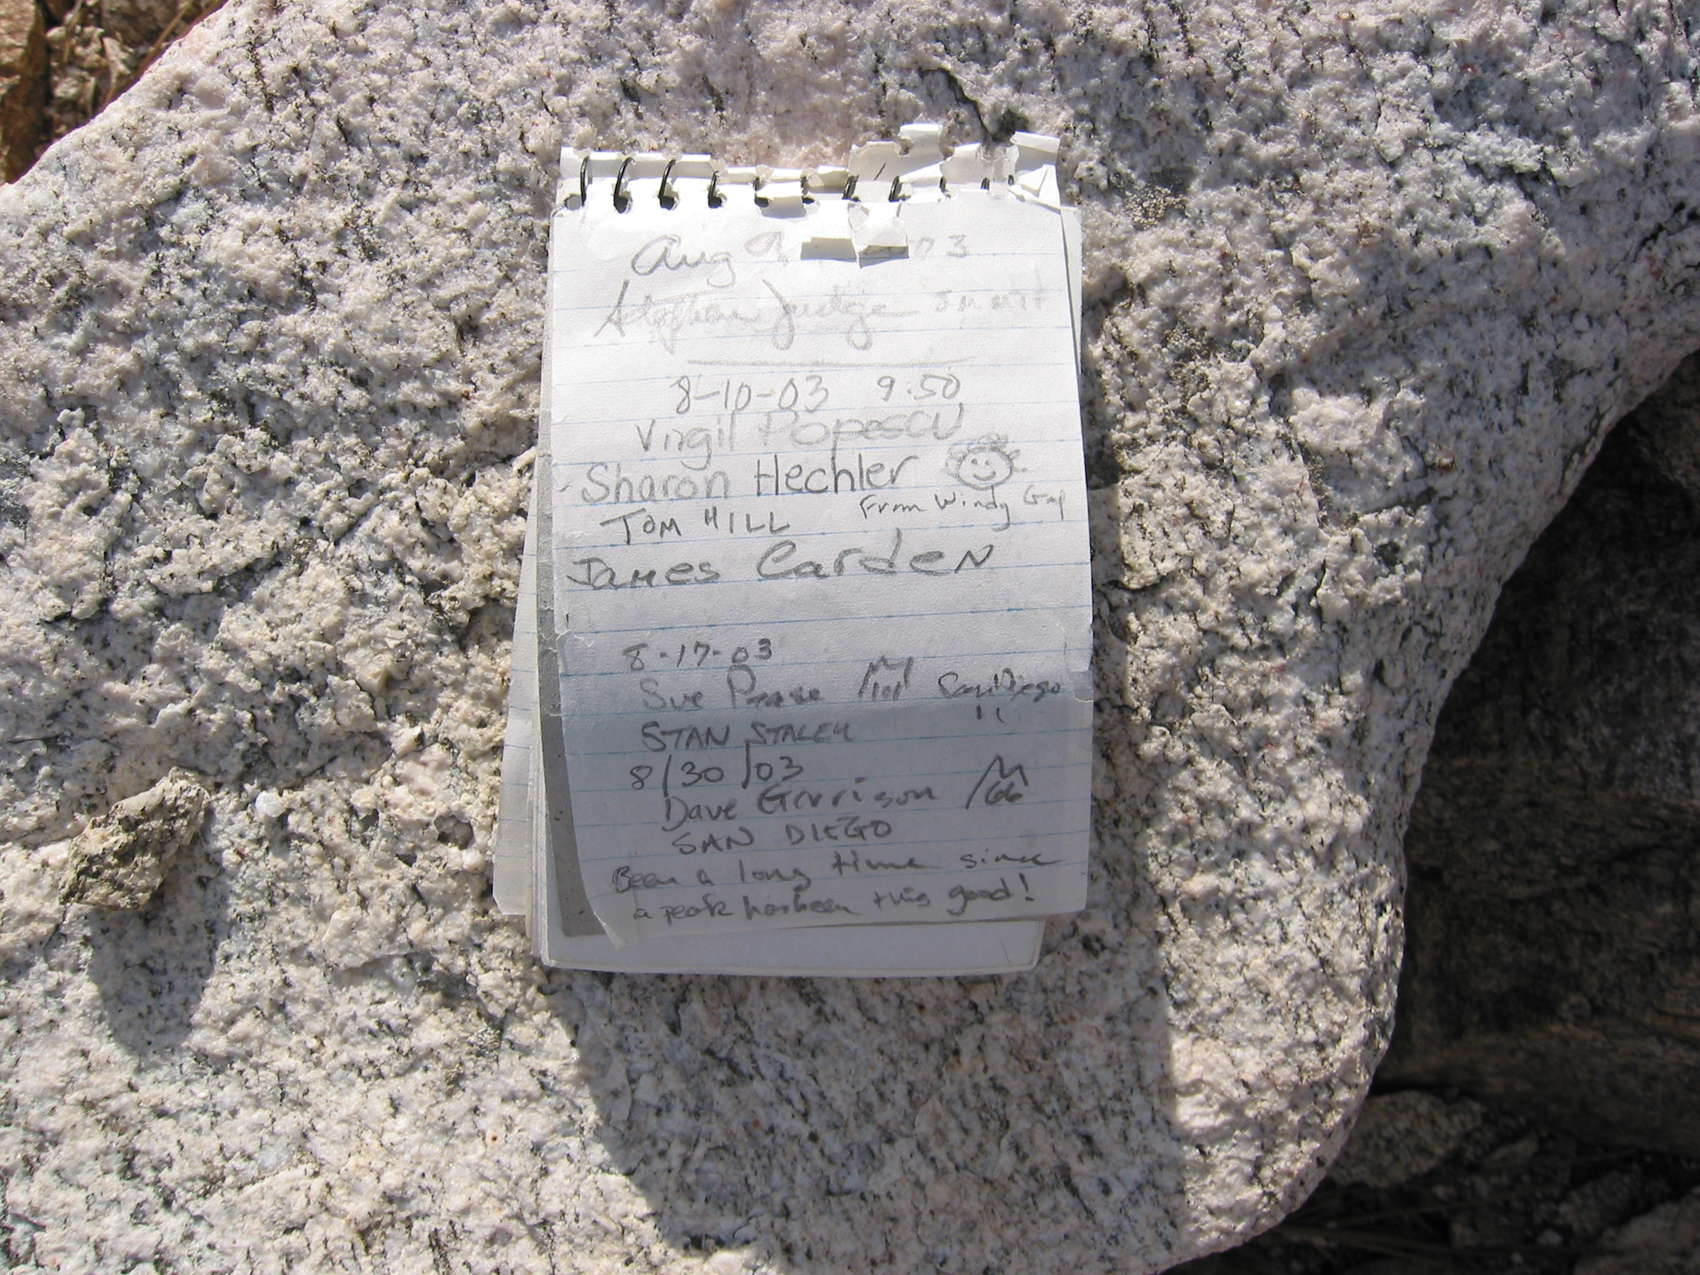 Aug 9 03
Stephen Judge
8-10-03 9:50
Virgil Popescu
Sharon Hechler
From Windy Gap
TOM HILL
James Carden
8-17-03
Sue San Diego
STAN STALEY "
8/30/03
Dave Garrison
SAN DIEGO
Been a long time since
a peak has been this good!